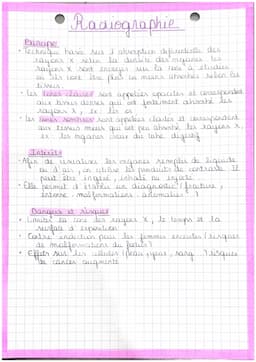 Radiographie
Principe
• Technique basée sur l'absorption différente des
rayons X selon la densité des organes les
rayons X sont envoyés sur la zone à étudier
où ils vont être plus ou moins absorbés selon les
tissus.
• Les zones claires sont appelées opacités et correspondent
aux tissus denses qui ont fortement absorbé les
rayons X, ex : les os
• Les zones sombres sont appelées clartés et correspondent
aux tissus mous qui ont peu absorbé les rayons X.
ex : les organes creux du tube digestif
Intérêts
• Afin de visualiser les organes remplis de liquide
ou d'air, on utilise les produits de contraste. Il
peut être ingéré, inhalé ou injecté
• Elle permet d'établir un diagnostic (fracture,
entorse, malformations, anomalies...)
Dangers et risques
• Limiter la zone des rayons X, le temps et la
surface d'exposition
• Contre indiction pour les femmes enceintes (risques
de malformations du foetus)
• Effets sur les cellules (peau, yeux, sang...) risques
de cancer augmenté